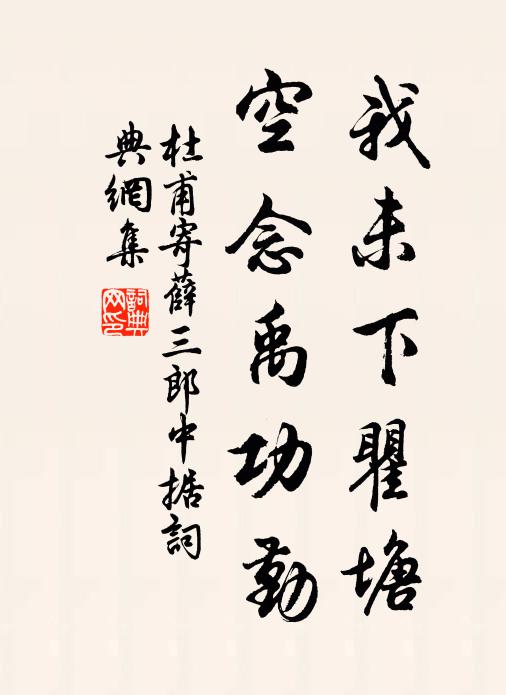 我未下瞿塘
空念禹功勤
杜甫寄薛三郎中據詞
典網集
詞典
网印